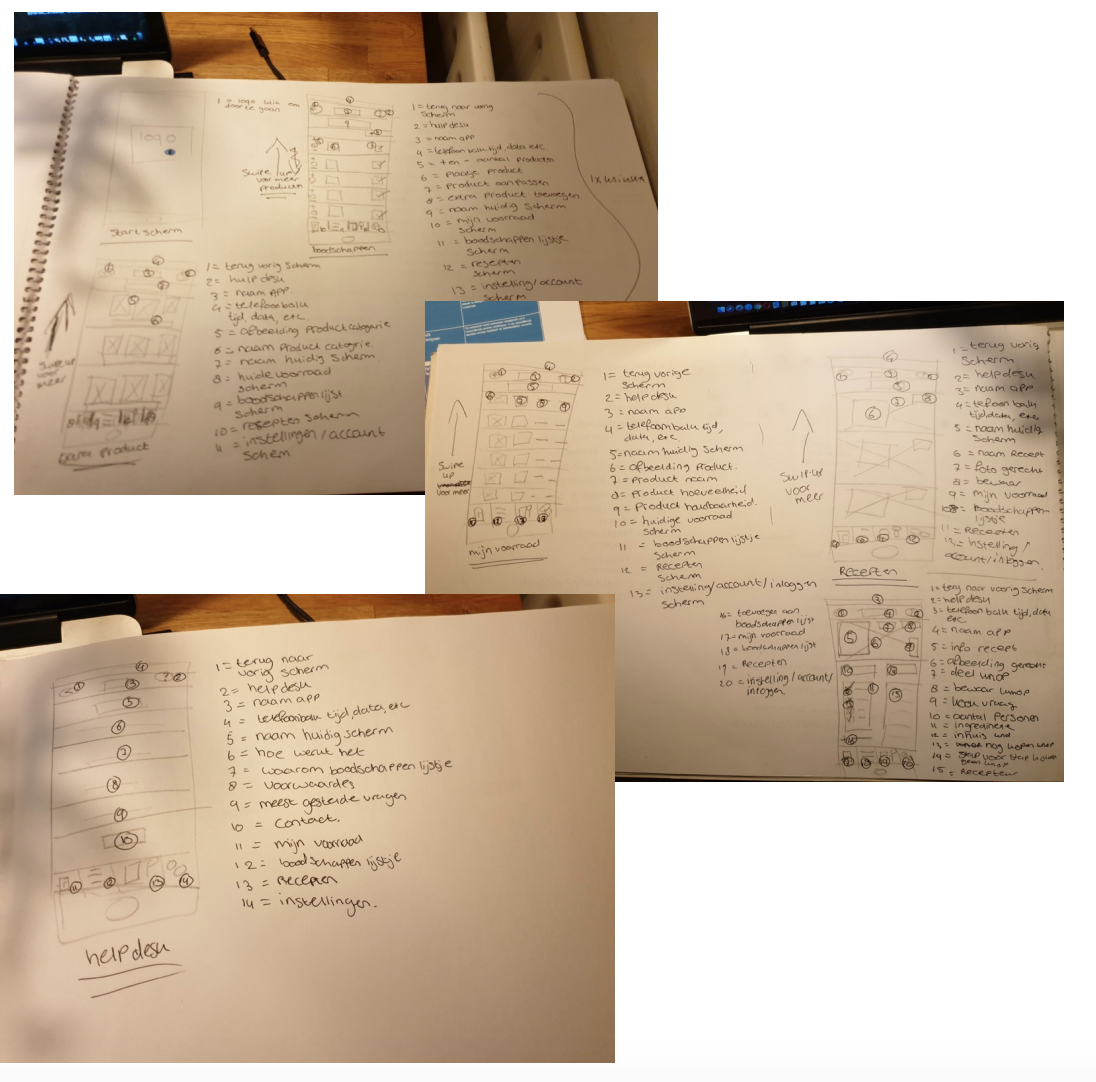 1 = logo klik om
door te gaan
logo
Startscherm
Swipe up
voor meer
producten
boodschappen
1 = terug naar vorig
scherm
2 = helpdesk
3 = naam app
4 = telefoon balk tijd, data etc.
5 = + en - aantal producten
6 = plaatje product
7 = product aanpassen
8 = extra product toevoegen
9 = naam huidig scherm
10 = mijn voorraad
scherm
11 = boodschappen lijstje
scherm
12 = resepten
scherm
13 = instelling/account
scherm
1x
1 = terug vorig scherm
2 = hulpdesk
3 = naam APP
4 = telefoonbalk
tijd, data, etc.
5 = afbeelding Product categorie
6 = naam Product categrie.
7 = naam huidig scherm.
8 = huide voorraad
scherm
9 = boodschappen lijst
scherm
10 = resepten scherm
11 = instellingen/account
scherm
Swipe up
voor
meer
extra product
1 = terug vorige
scherm
2 = helpdesk
3 = naam app
4 = telefoonbalk tijd,
data, etc
5 = naam huidig scherm
6 = afbeelding product.
7 = product naam
8 = product hoeveelheid
9 = product houdbaarheid.
10 = huidige voorraad
scherm
11 = boodschappen lijstje
scherm
12 = Recepten
scherm
13 = instelling/account/inloggen
scherm
Swipe
up
voor meer
mijn voorraad
Swip-up
voor
meer
Recepten
1 = terug vorig
scherm
2 = helpdesk
3 = naam app
4 = tefoon balk
tijd, data, etc.
5 = naam huidig
scherm
6 = naam Recept
7 = foto gerecht
8 = bewaar
9 = mijn voorraad
10 = Boodschappen-
lijstje
11 = Recepten
12 = instelling/
account/inloggen.
16 = toevoegen aan
boodschappen lijst
17 = mijn voorraad
18 = boodschappen lijst
19 = Recepten
20 = instelling/account/
inloggen
1 = terug naar voorig scherm
2 = helpdesk
3 = telefoon balk tijd, data
etc
4 = naam app
5 = info recept
6 = afbeelding gerecht
7 = deel knop
8 = bewaar knop
10 = aantal personen
12 = inhuis
13 = nog kopen knop
14 = stap voor stap
15 = Recepteur
1 = terug naar
vorig scherm
2 = helpdesk
3 = naam app
4 = telefoonbalk tijd, data, etc
5 = naam huidig scherm
6 = hoe werkt het
7 = waarom boodschappen lijstje
8 = voorwaardes
9 = meest gestelde vragen
10 = Contact.
11 = mijn voorraad
12 = boodschappen lijstje
13 = Recepten
14 = instellingen.
helpdesk